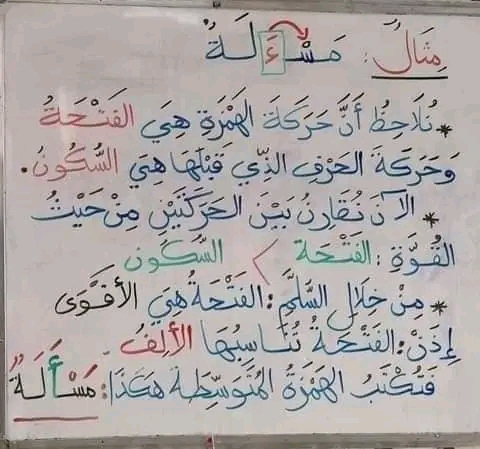 مِثَالٌ: مَسْـ ـَٔـ ـلَـةٌ
* نُلَاحِظُ أَنَّ حَرَكَةَ الهَمْزَةِ هِيَ الفَتْحَةُ
وَحَرَكَةَ الحَرْفِ الذِّي قَبْلَهَا هِيَ السُّكُونُ.
* الآنَ نُقَارِنُ بَيْنَ الحَرَكَتَيْنِ مِنْ حَيْثُ
القُوَّةِ: الفَتْحَة > السُّكُون
* مِنْ خِلَالِ السُّلَّمِ: الفَتْحَةُ هِيَ الأَقْوَى
إِذَنْ: الفَتْحَةُ تُنَاسِبُهَا الأَلِفُ
فَتُكْتَبُ الهَمْزَةُ المُتَوَسِّطَة هَكَذَا: مَسْأَلَةٌ